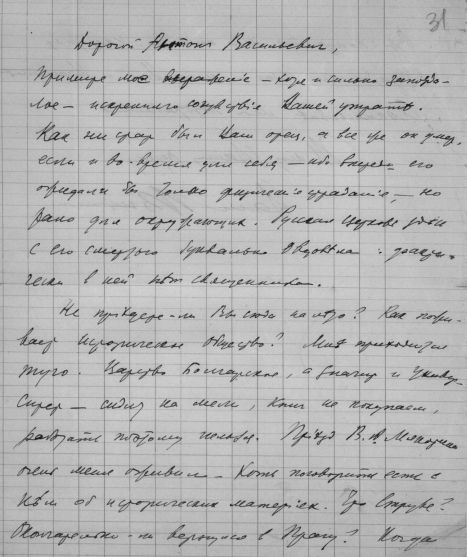 31
Дорогой Антоний Васильевич,
Примите мое выражение – хотя и сильно запозда-
лое – искренняго сочувствія Вашей утратѣ.
Как ни стар был Ваш отец, а все же он умер,
если и во-время для себя – ибо впереди его
ожидали бы только физическіе страданіе, – но
рано для окружающих. Русская церковь здѣсь
с его смертью буквально овдовѣла: факти-
чески в ней нѣт священника.
Не приѣдете-ли Вы сюда на лѣто? Как пожи-
вает историческое общество? Мнѣ приходится
туго. Царство Болгарское, а значит и Универ-
ситет – сидит на мели, книг не покупаем,
работать поэтому нельзя. Приѣзд В. А. Мякотина
очень меня оживил – Хоть поговорить есть с
кѣм об исторических матеріях. Что Струве?
Окончательно-ли вернулся в Прагу? Когда